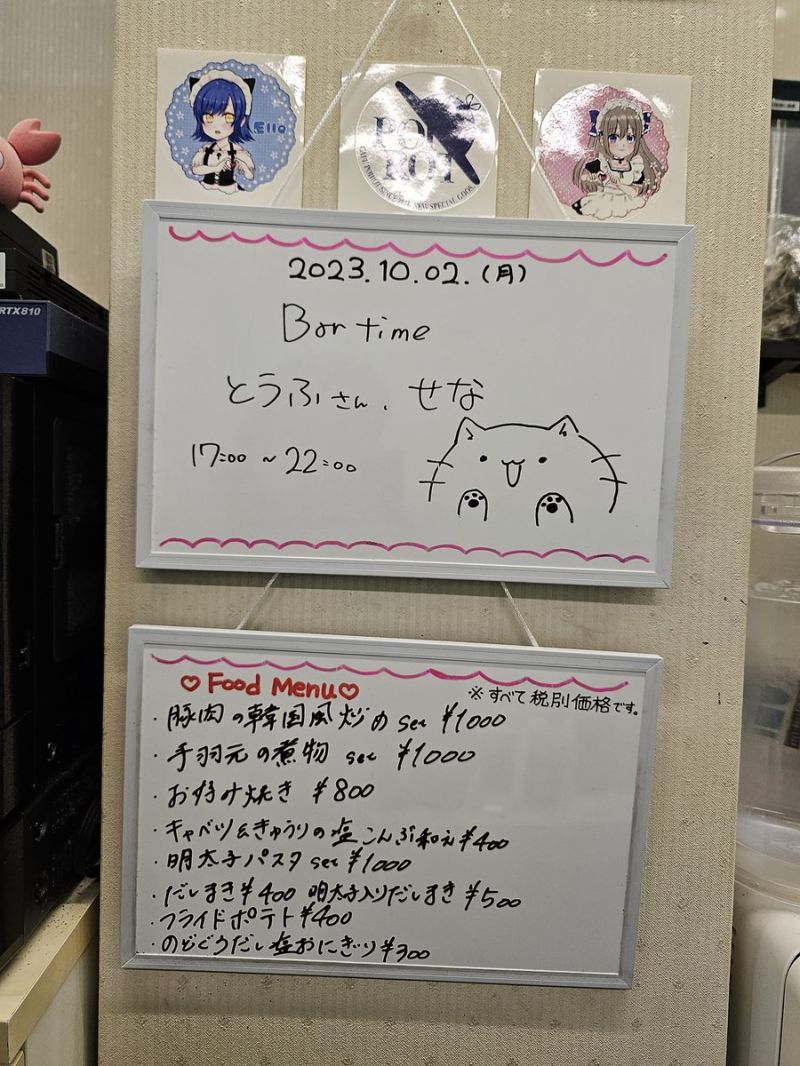 Ello
RTX810
2023.10.02.(月)
Bar time
とうふさん、せな
17:00 ~ 22:00
♡ Food Menu ♡
※すべて税別価格です。
・豚肉の韓国風炒め set ¥1000
・手羽元の煮物 set ¥1000
・お好み焼き ¥800
・キャベツ&きゅうりの塩こんぶ和え ¥400
・明太子パスタ set ¥1000
・だしまき ¥400 明太子入りだしまき ¥500
・フライドポテト ¥400
・のどぐろだし塩おにぎり ¥300